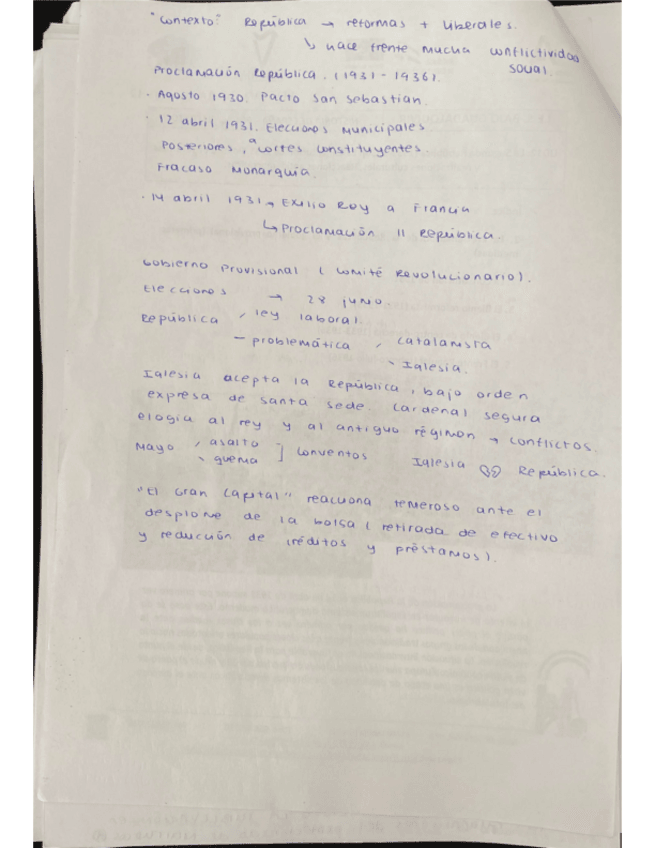 "Contexto": República → reformas + liberales.
↳ hace frente mucha conflictividad
social
Proclamación República. (1931-1936).
· Agosto 1930. Pacto San Sebastian.
· 12 abril 1931. Elecciones Municipales
Posteriores, a cortes constituyentes.
Fracaso Monarquía.
· 14 abril 1931 → Exilio Rey a Francia
↳ Proclamación II República.
Gobierno Provisional (Comité Revolucionario).
Elecciones → 28 junio.
República, ley laboral.
- problemática, catalanista
- Iglesia.
Iglesia acepta la República, bajo orden
expresa de santa sede. Cardenal segura
elogia al rey y al antiguo régimen → conflictos.
Mayo, asalto
- quema ] conventos Iglesia República.
"El Gran Capital" reacciona temeroso ante el
desplome de la bolsa (retirada de efectivo
y reducción de créditos y préstamos).